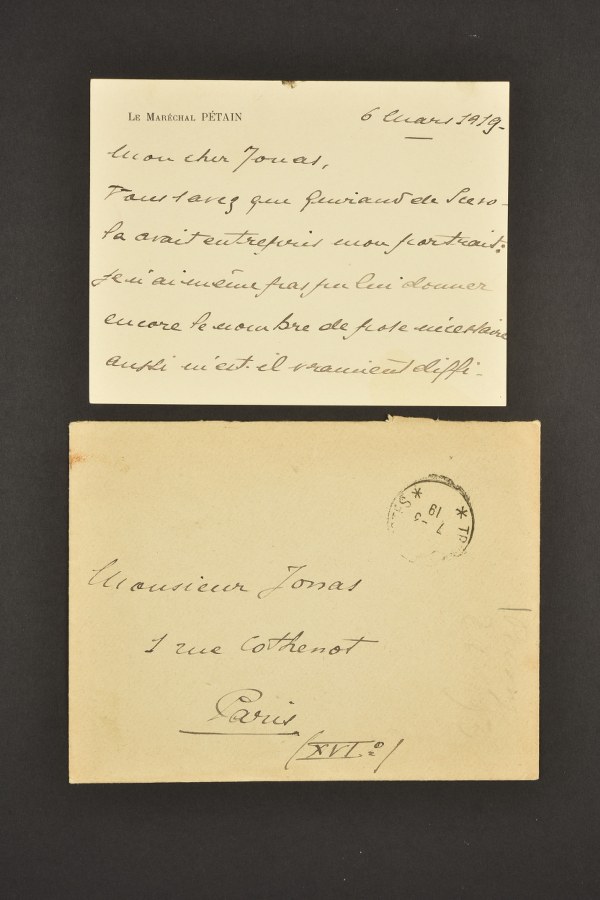 LE MARÉCHAL PÉTAIN
6 Mars 1919.
Mon cher Jonas,
Vous savez que Guirand de Scevo-
la avait entrepris mon portrait:
je n'ai même pas pu lui donner
encore le nombre de pose nécessaire
aussi m'est-il vraiment diffi-
* TR
7 -3
19
ES *
Monsieur Jonas
1 rue Cothenot
Paris
(XVI.e)